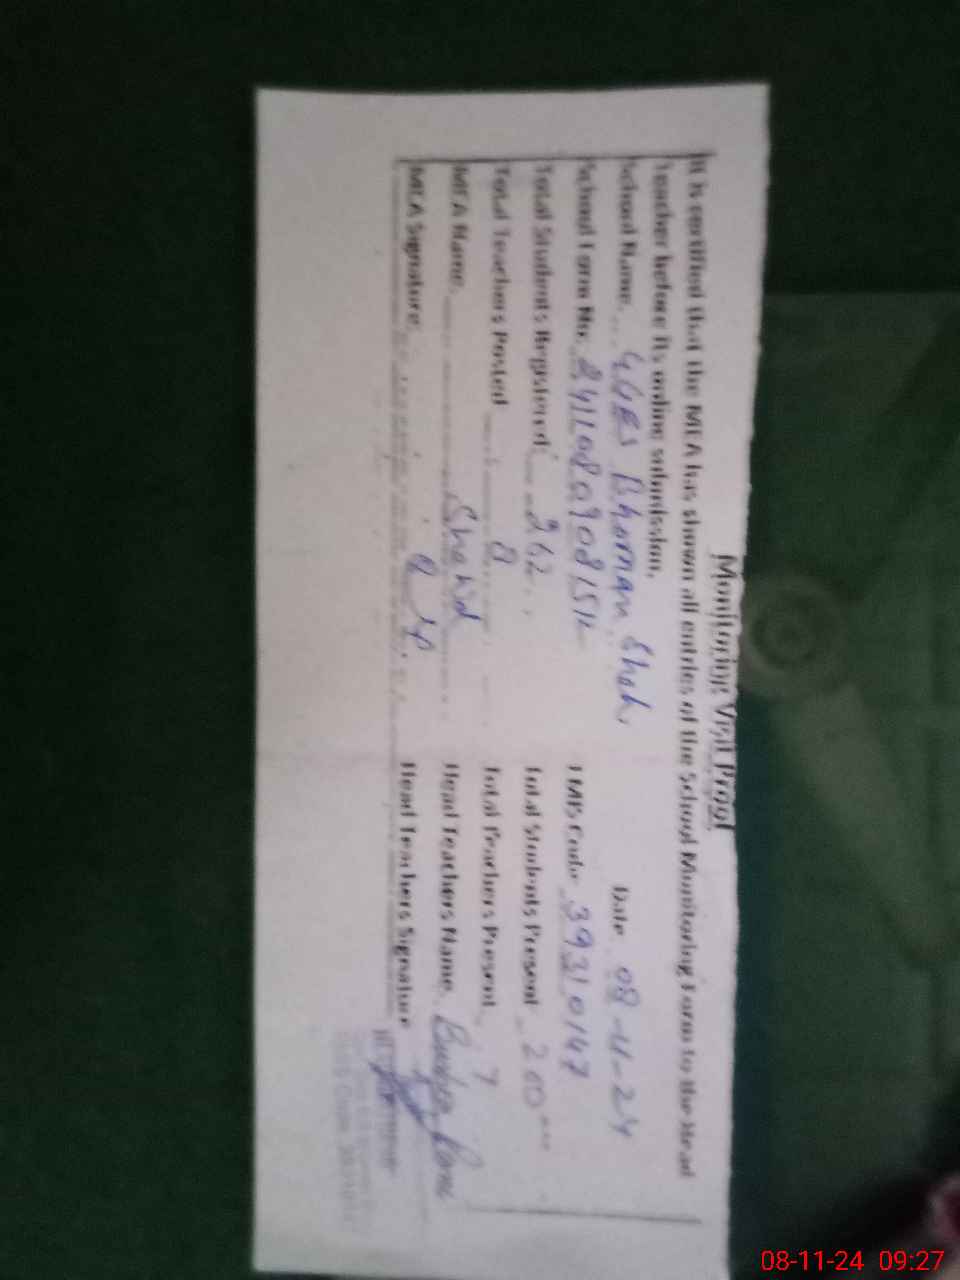 Monitoring Visit Proof
It is certified that the MEA has shown all entries of the School Monitoring Form to the Head
Teacher before its online submission.
School Name GGES Bhoman Shah. Date 08-11-24
School Form No. EMIS Code 39310147
Total Students Registered 262 Total Students Present 200
Total Teachers Posted 8 Total Teachers Present 7
MEA Name Shahid Head Teachers Name Bushra
MEA Signature Head Teachers Signature
08-11-24 09:27